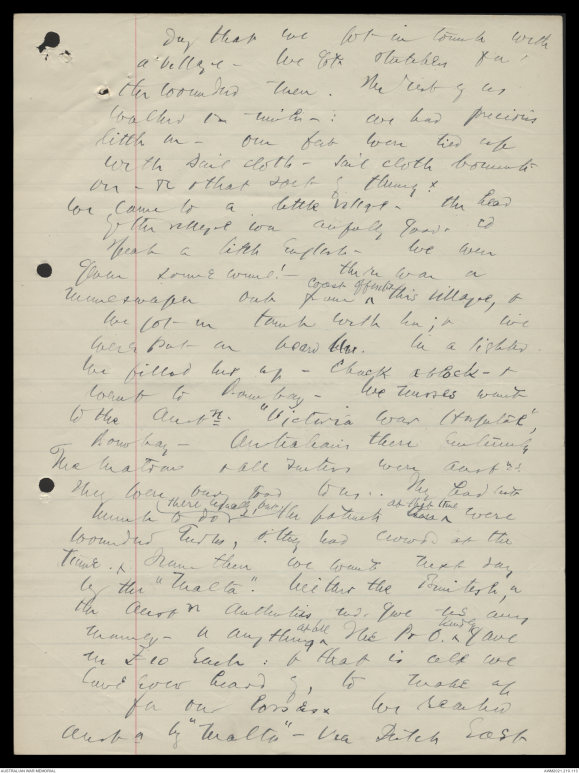 day that we got in touch with
a village - we got stretchers for
the wounded then. The rest of us
walked in : we had precious
little on - our feet were tied up
with sail cloth - sail cloth
on - or that sort of thing x
We came to a little village - the head
of the village was awfully good. cd
speak a little English - we were
given some wine! - there was a
minesweeper out from coast off this village, &
we got in touch with her; & we
were put on board her. In a lighter.
We filled her up - chock a block - &
went to Bombay - We nurses went
to the Austn. "Victoria War Hospital",
Bombay - Australians there entirely
The Matron & all sisters were Austns:
They were very good to us.. They had not
much to do there usually, but the patients at that time were
wounded Turks, & they had crowds at the
time. x From there we went next day,
by the "Malta". Neither the British, or
the Austn authorities wd. give us any
money - or anything at all x The P & O. kindly gave
us £10 each : & that is all we
have ever heard of, to make up
for our losses x We reached
Aust a by "Malta" - via Dutch East
AUSTRALIAN WAR MEMORIAL